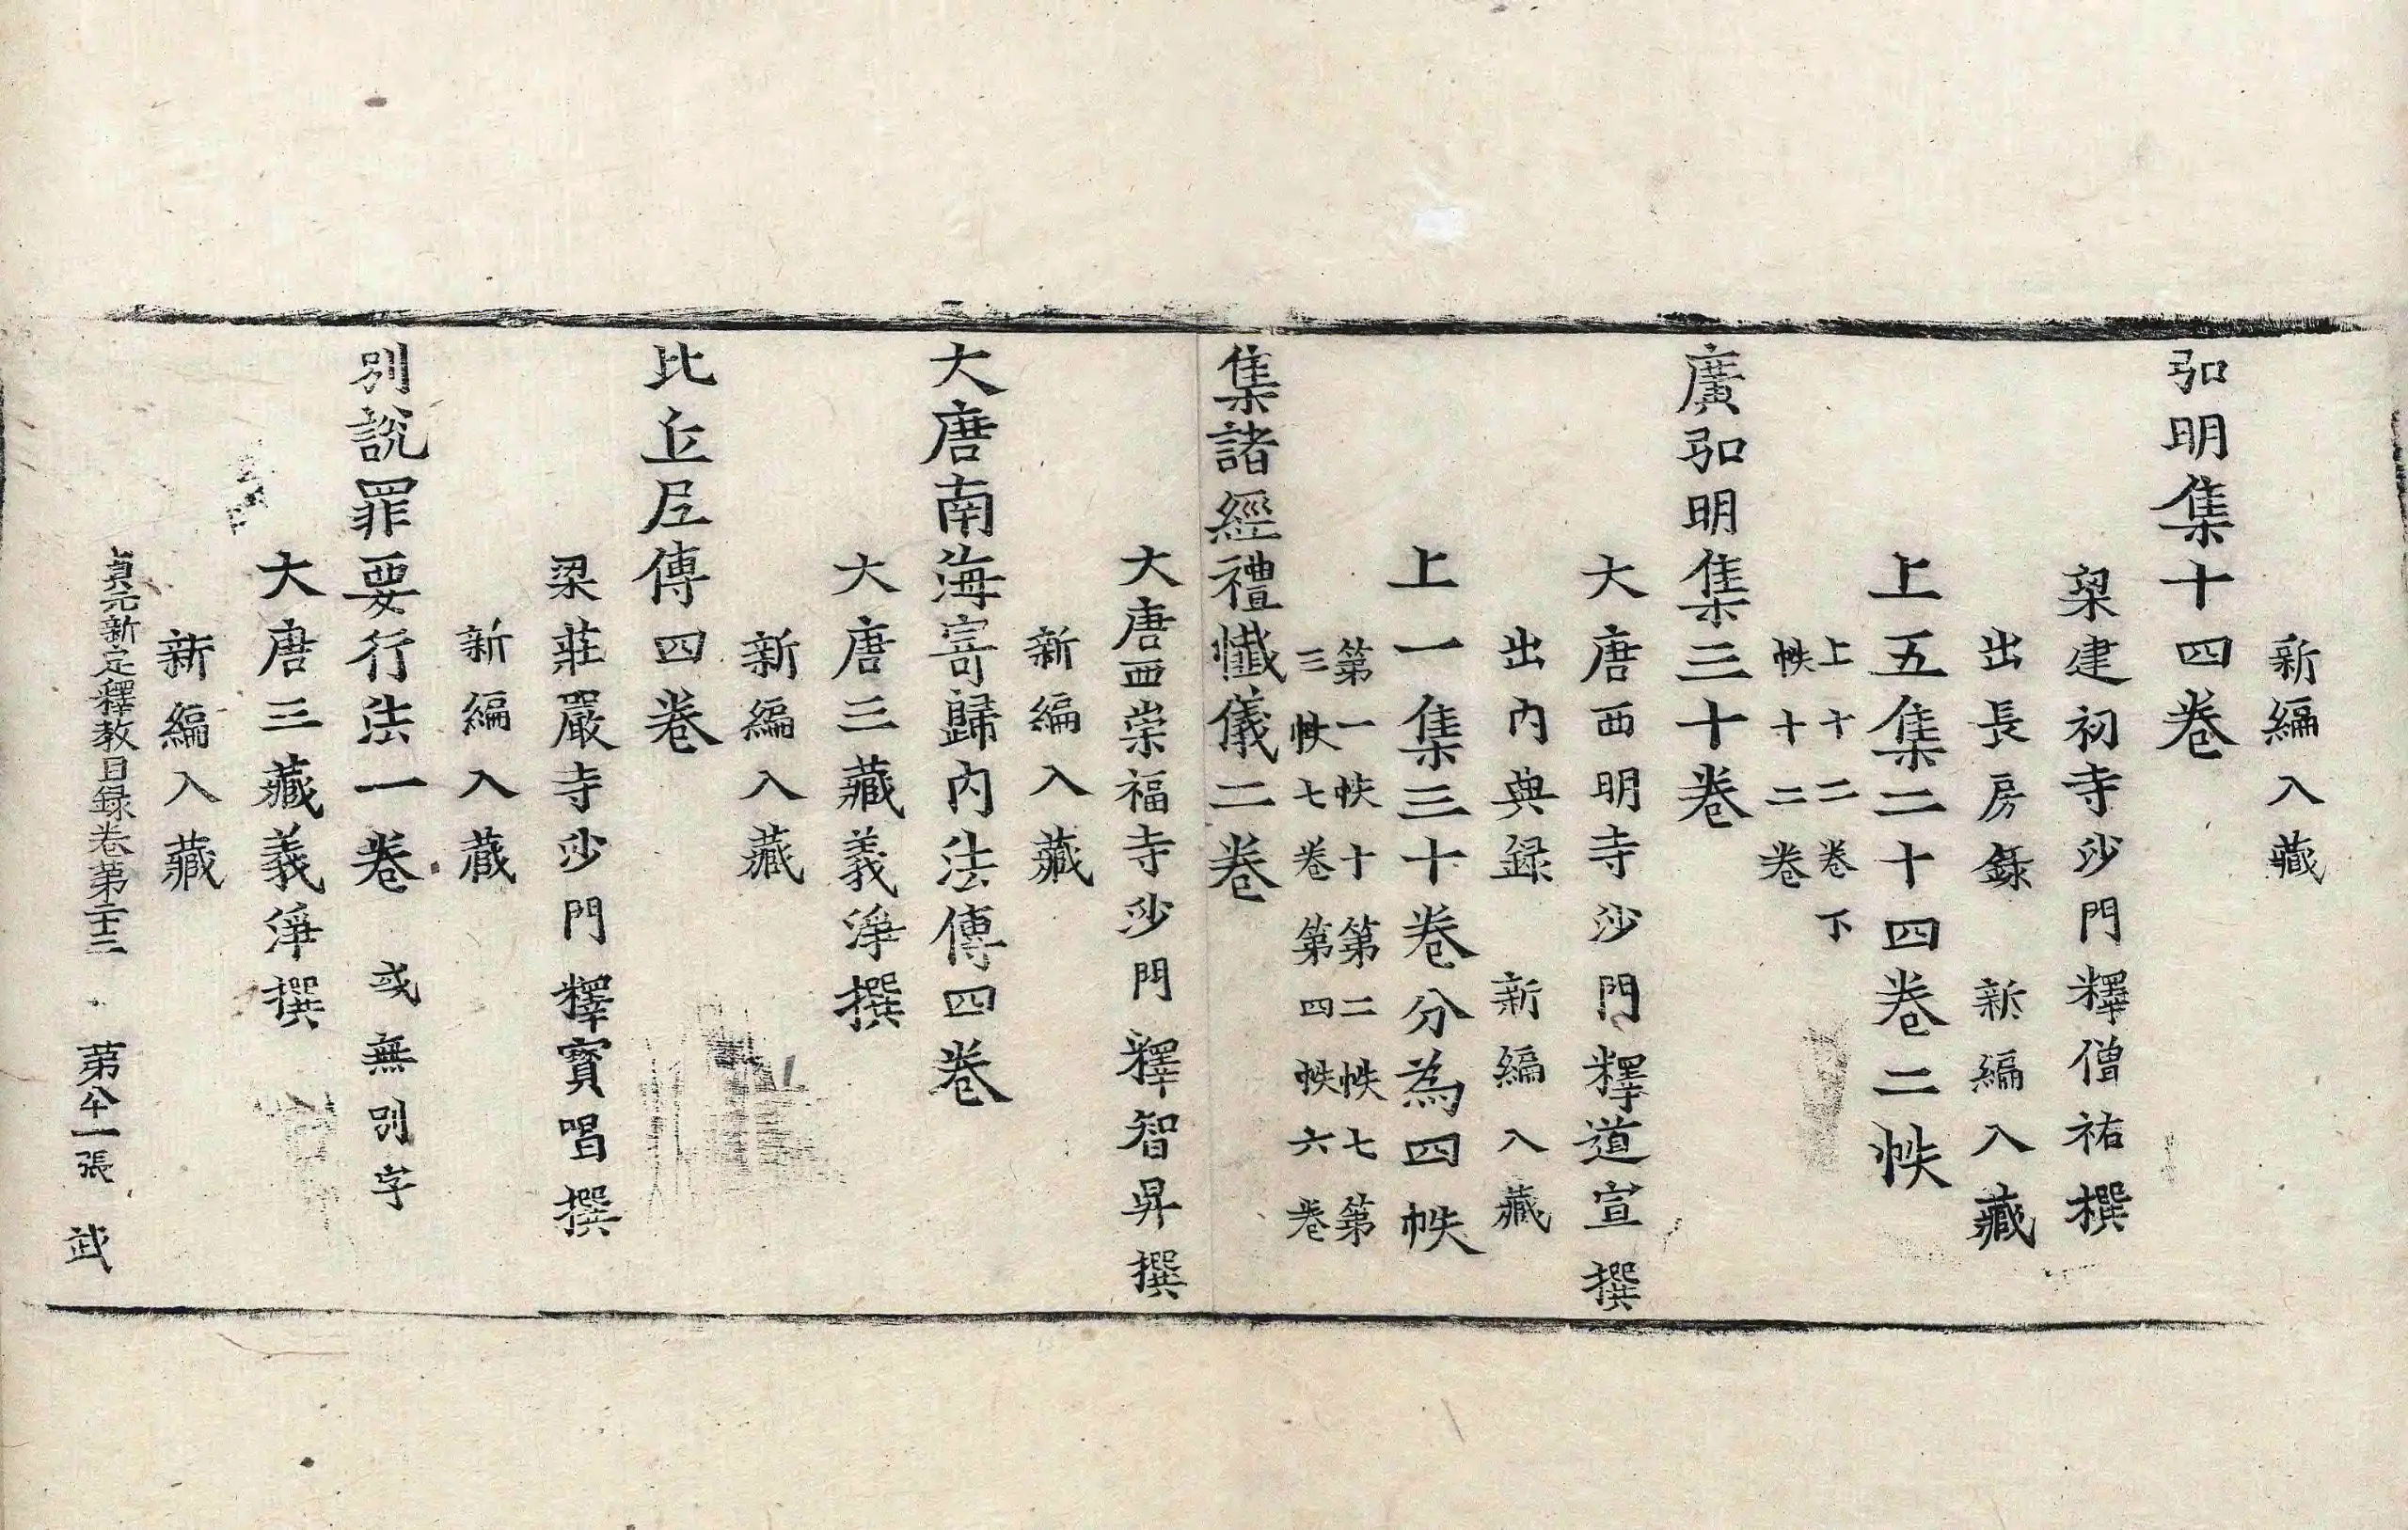 新編入藏
弘明集十四卷
梁建初寺沙門釋僧祐撰
出長房錄 新編入藏
上五集二十四卷二帙
上十二卷下
帙十二卷
廣弘明集三十卷
大唐西明寺沙門釋道宣撰
出內典錄 新編入藏
上一集三十卷分為四帙
第一帙十第二帙七第
三帙七卷第四帙六卷
集諸經禮懺儀二卷
大唐西崇福寺沙門釋智昇撰
新編入藏
大唐南海寄歸內法傳四卷
大唐三藏義淨撰
新編入藏
比丘尼傳四卷
梁莊嚴寺沙門釋寶唱撰
新編入藏
別說罪要行法一卷 或無別字
大唐三藏義淨撰
新編入藏
貞元新定釋教目録卷第二十三 第八十一張 武